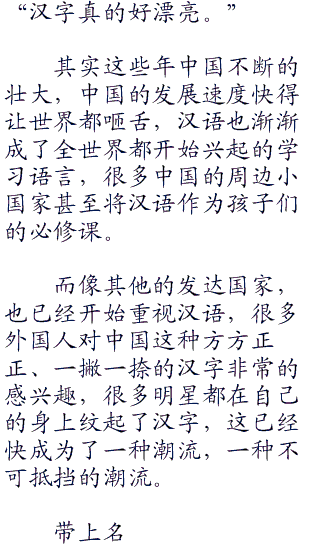 “汉字真的好漂亮。”
其实这些年中国不断的
壮大，中国的发展速度快得
让世界都咂舌，汉语也渐渐
成了全世界都开始兴起的学
习语言，很多中国的周边小
国家甚至将汉语作为孩子们
的必修课。
而像其他的发达国家，
也已经开始重视汉语，很多
外国人对中国这种方方正
正、一撇一捺的汉字非常的
感兴趣，很多明星都在自己
的身上纹起了汉字，这已经
快成为了一种潮流，一种不
可抵挡的潮流。
带上名